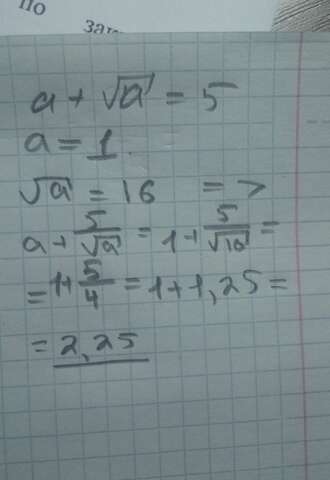 по
a + √a = 5
a = 1.
√a = 16 =>
a + 5/√a = 1 + 5/√16 =
= 1 + 5/4 = 1 + 1,25 =
= 2,25